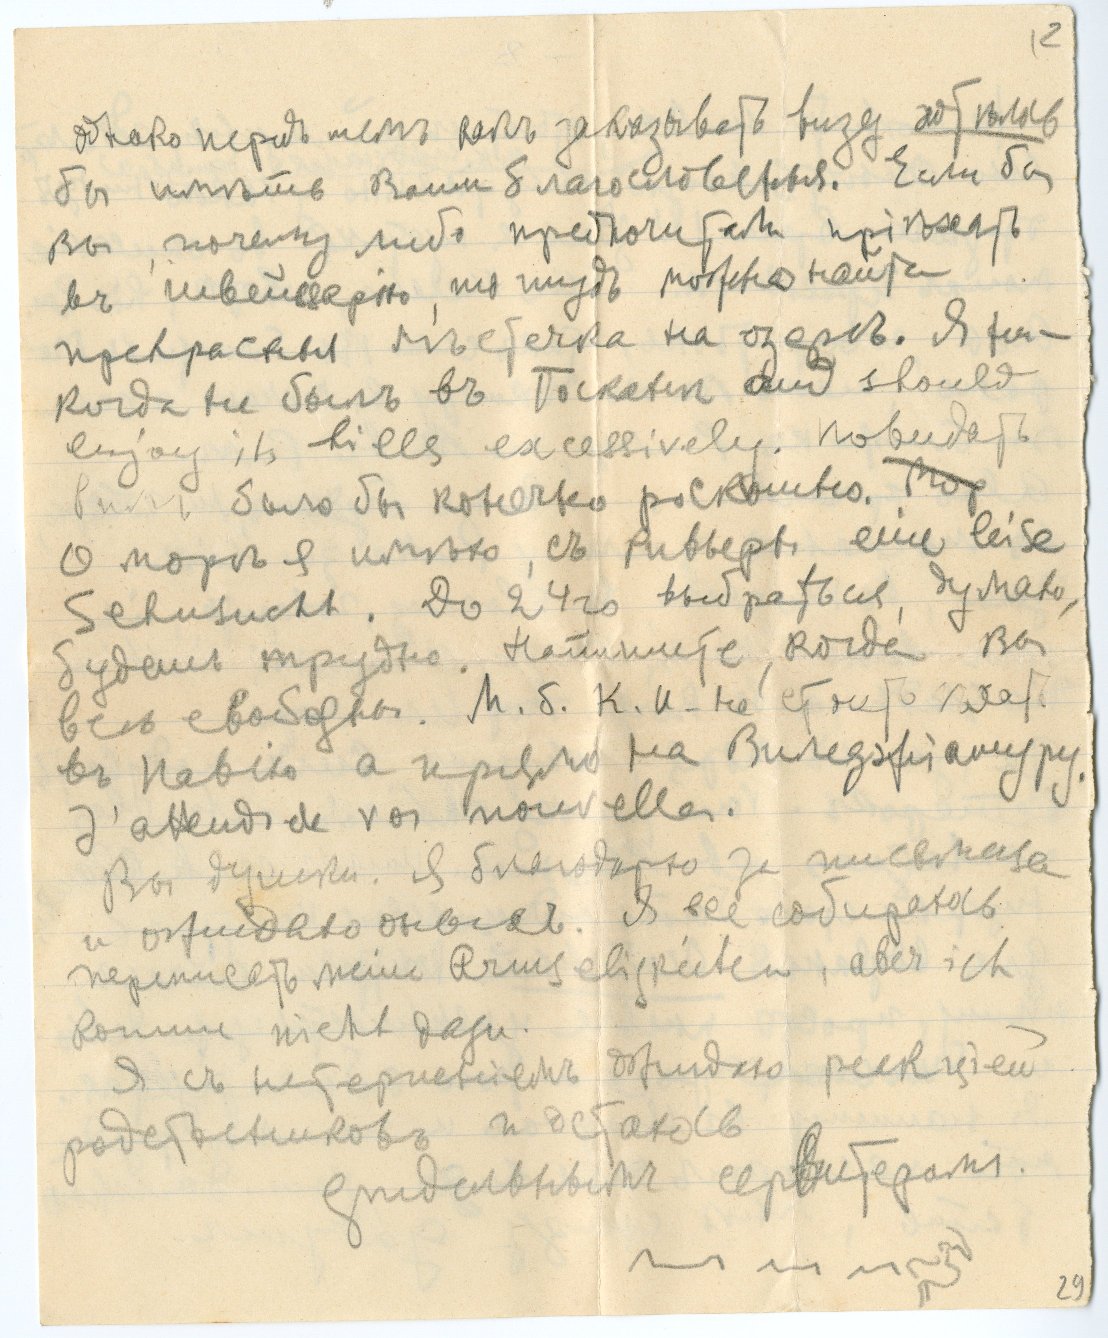 12
однако передъ тѣмъ какъ заказывать визу хотѣлъ
бы имѣть Ваши благословенья. Если бы
Вы, почему либо предпочитали пріѣхать
въ Швейцарію, то тутъ можно найти
прекрасныя мѣстечка на озерѣ. Я ни-
когда не былъ въ Тосканѣ and should
enjoy its hills excessively. Повидать
было бы конечно роскошно.
О морѣ я имѣю, съ Ривьеры eine leise
Sehnsucht. До 24го выбраться, думаю,
будетъ трудно. Напишите, когда Вы
свободны. М. б. К. И-не стоитъ ѣхать
въ Павію а прямо на
J'attends de vos nouvelles.
Вы душки. Я благодарю за письмеца
и ожидаю оныхъ. Я все собираюсь
переписать meine Armseligkeiten, aber ich
komme nicht dazu.
Я съ нетерпѣніемъ ожидаю реакціей
родственниковъ и остаюсь
29